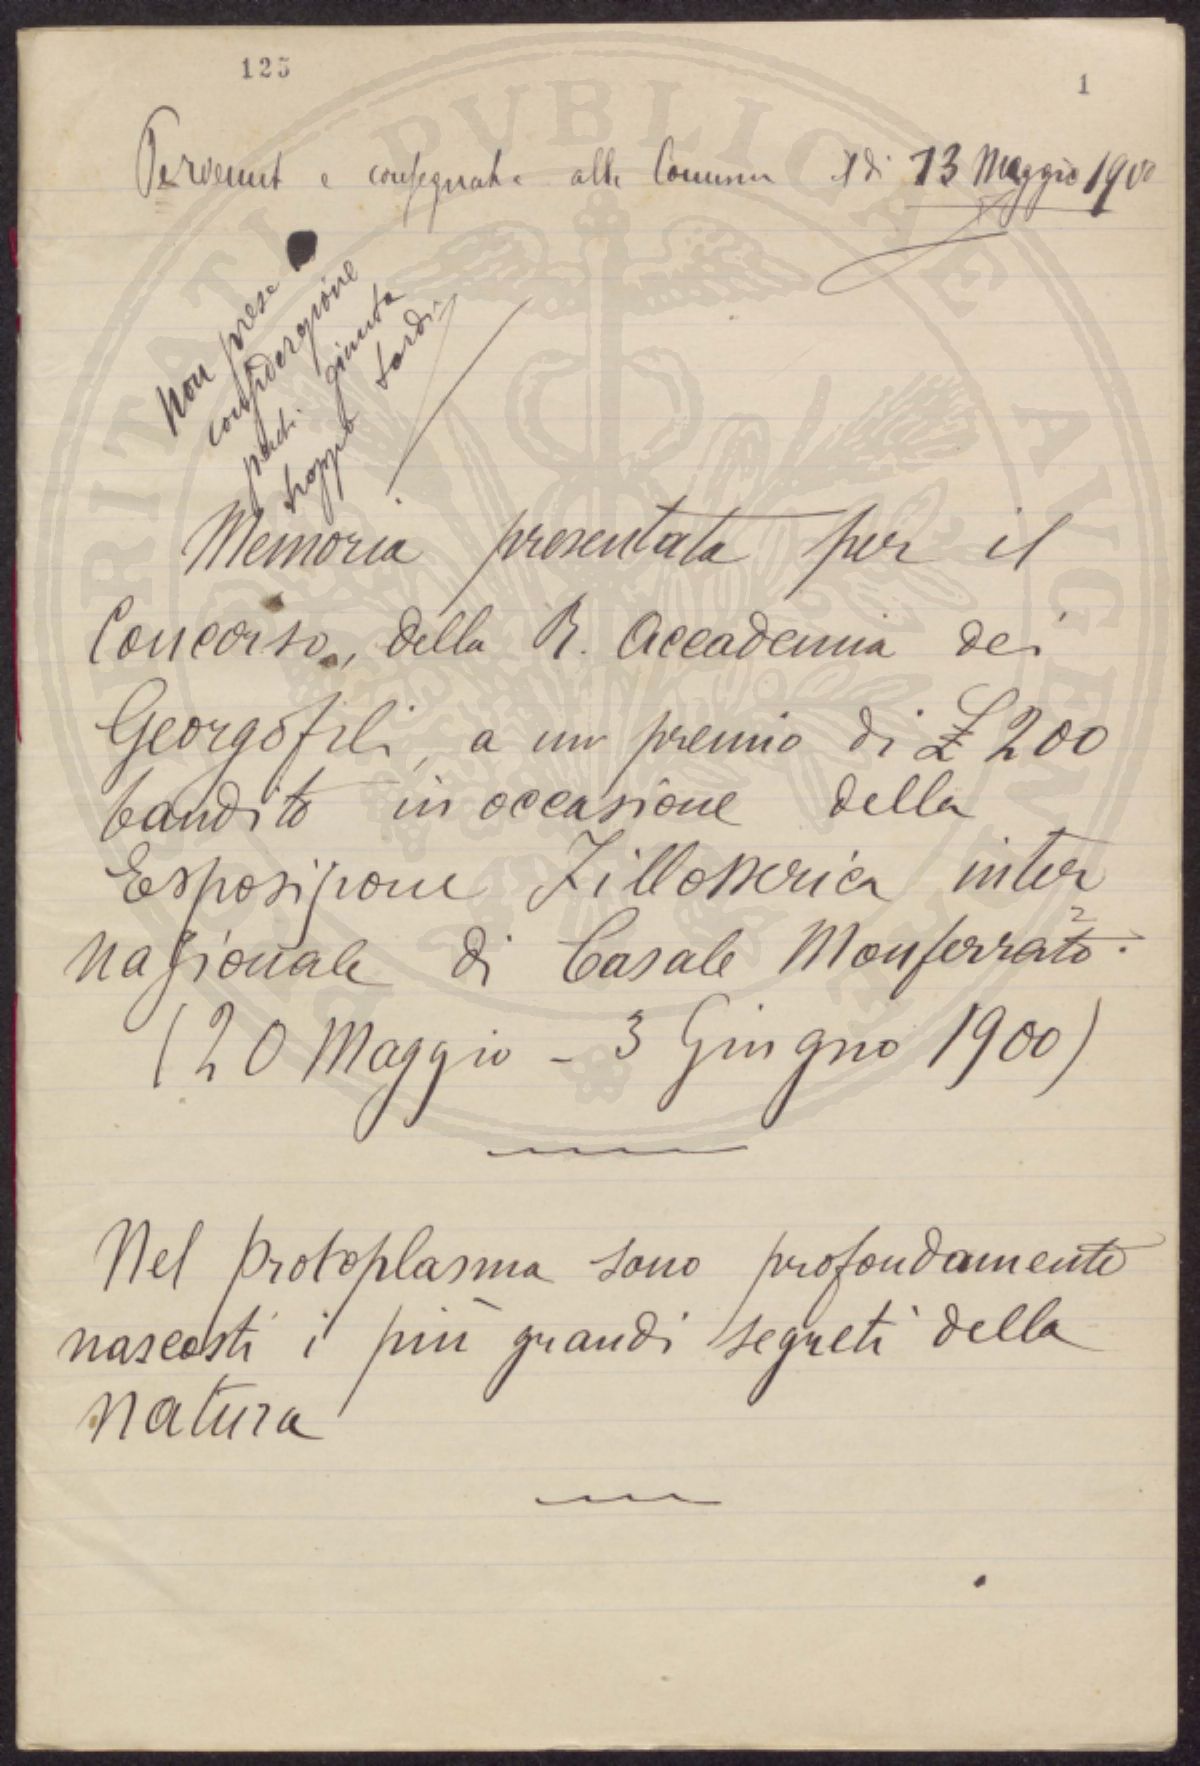 125
1
Pervenut e consegnata alla Commn il di 13 Maggio 1900
non presa
considerazione
perchè giunta
troppo tardi
Memoria presentata per il
Concorso, della R. Accademia dei
Georgofili, a un premio di £ 200
bandito in occasione della
Esposizione Fillosserica inter
nazionale di Casale Monferrato.
(20 Maggio - 3 Giugno 1900)
Nel protoplasma sono profondamente
nascosti i più grandi segreti della
natura
PUBLICAE